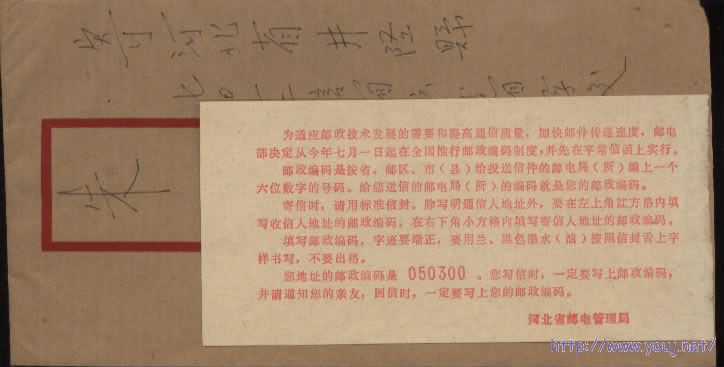 寄河北省井陉县
朱
为适应邮政技术发展的需要和提高通信质量，加快邮件传递速度，邮电
部决定从今年七月一日起在全国推行邮政编码制度，并先在平常信函上实行。
邮政编码是按省、邮区、市（县）给投送信件的邮电局（所）编上一个
六位数字的号码。给您送信的邮电局（所）的编码就是您的邮政编码。
寄信时，请用标准信封。除写明通信人地址外，要在左上角红方格内填
写收信人地址的邮政编码，在右下角小方格内填写寄信人地址的邮政编码。
填写邮政编码，字迹要端正，要用兰、黑色墨水（油）按照信封舌上字
样书写，不要出格。
您地址的邮政编码是 050300 。您写信时，一定要写上邮政编码，
并请通知您的亲友，回信时，一定要写上您的邮政编码。
河北省邮电管理局
http://www.youj.net/